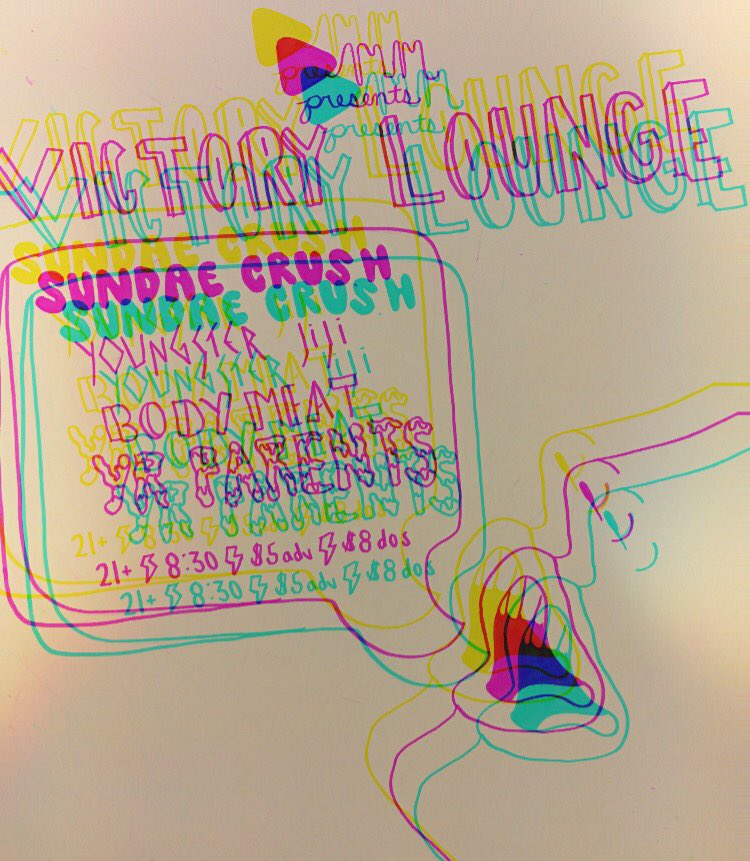 presents
VICTORY LOUNGE
SUNDAE CRUSH
YOUNGSTER JiJi
BODY MEAT
YR PARENTS
21+ ⚡ 8:30 ⚡ $5adv ⚡ $8 dos